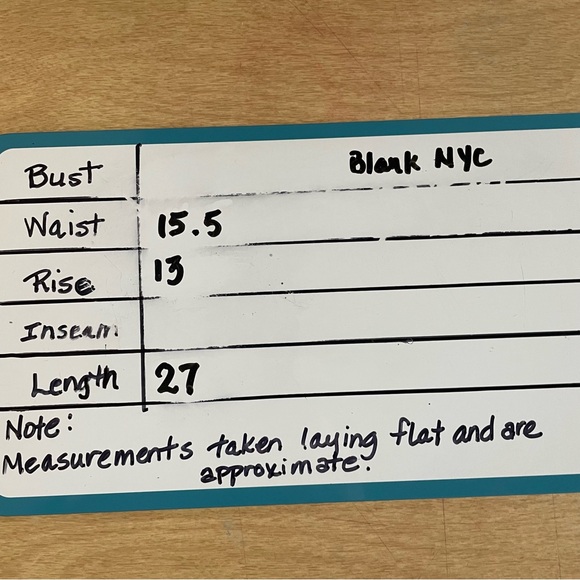 Bust Blank NYC
Waist 15.5
Rise 13
Inseam
Length 27
Note:
Measurements taken laying flat and are
approximate.